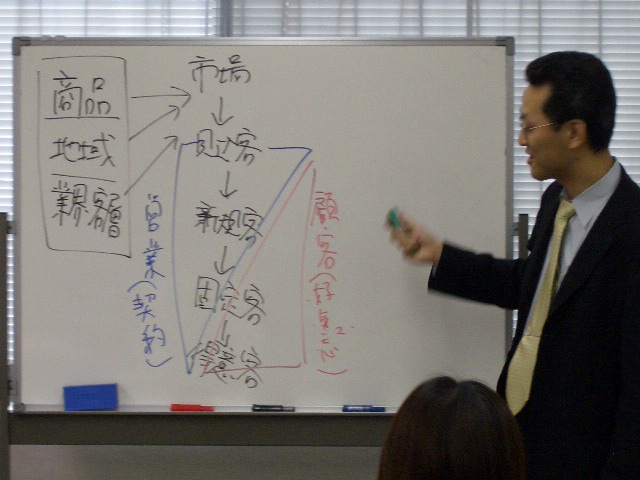 商品
地域
業界客層
市場
見込客
新規客
固定客
得意客
営業(契約)
顧客